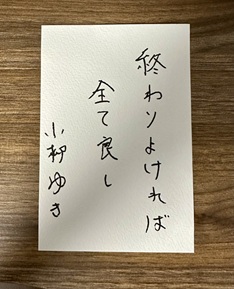 終わりよければ
全て良し
小柳ゆき